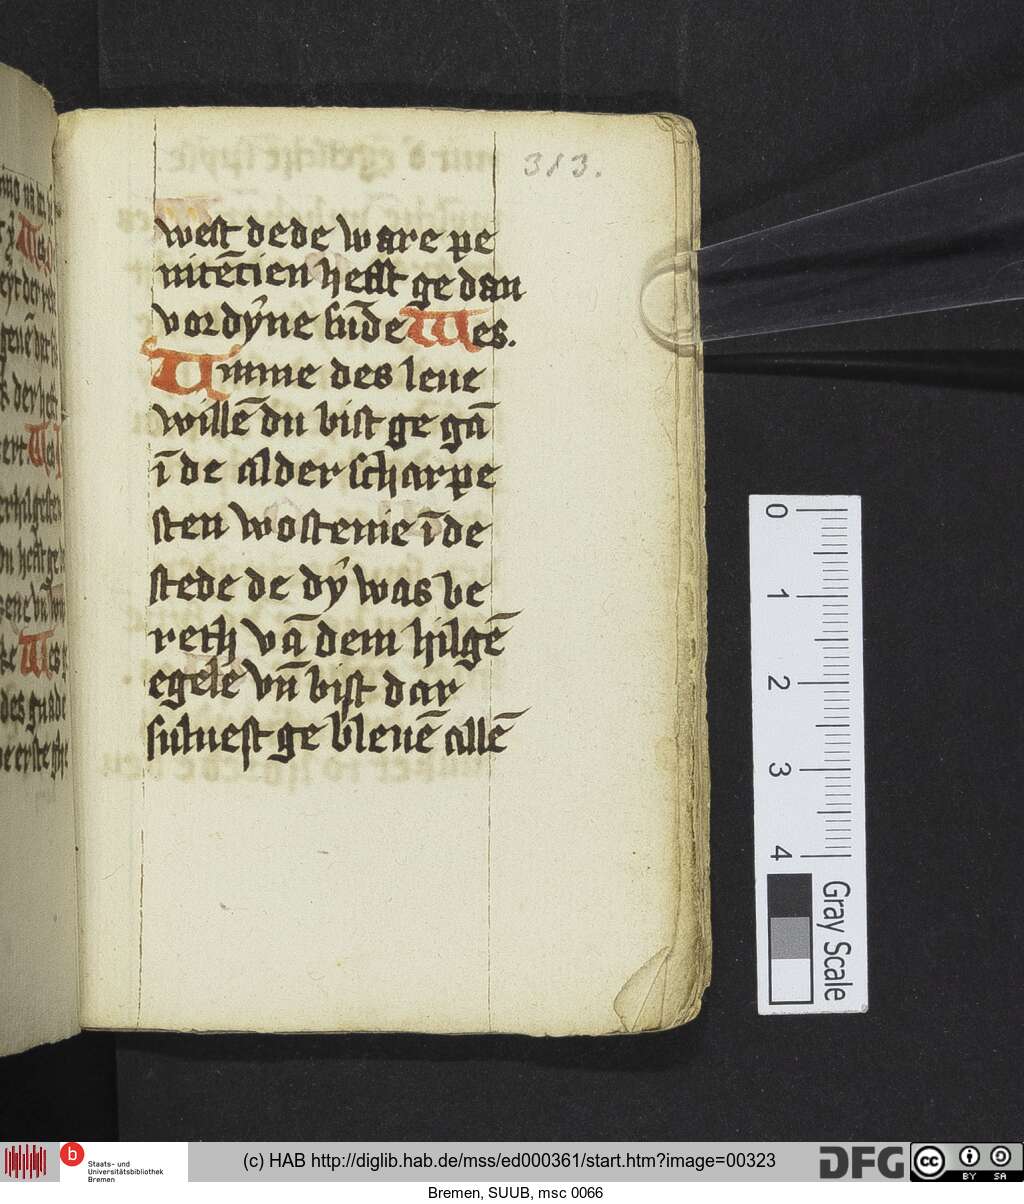 313.
west dede ware pe
nitēcien hefft ge dan
vor dẏne sūde Wes.
Umme des leue
willē du bist ge gā
ī de alder scharpe
sten wostenie īde
stede de dẏ was be
reth vā dem hilgē
egele vn̄ bist dar
suluest ge bleuē allē
0
1
2
3
4
Gray Scale
b
Staats- und
Universitätsbibliothek
Bremen
(c) HAB http://diglib.hab.de/mss/ed000361/start.htm?image=00323
DFG
cc BY SA
Bremen, SUUB, msc 0066